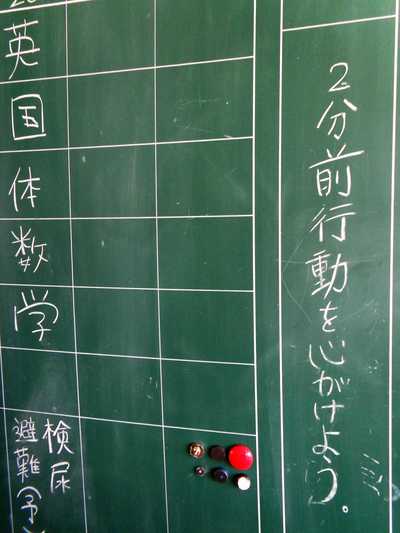 2分前行動を心がけよう。
英
国
体
数
学
検尿
避難(予)